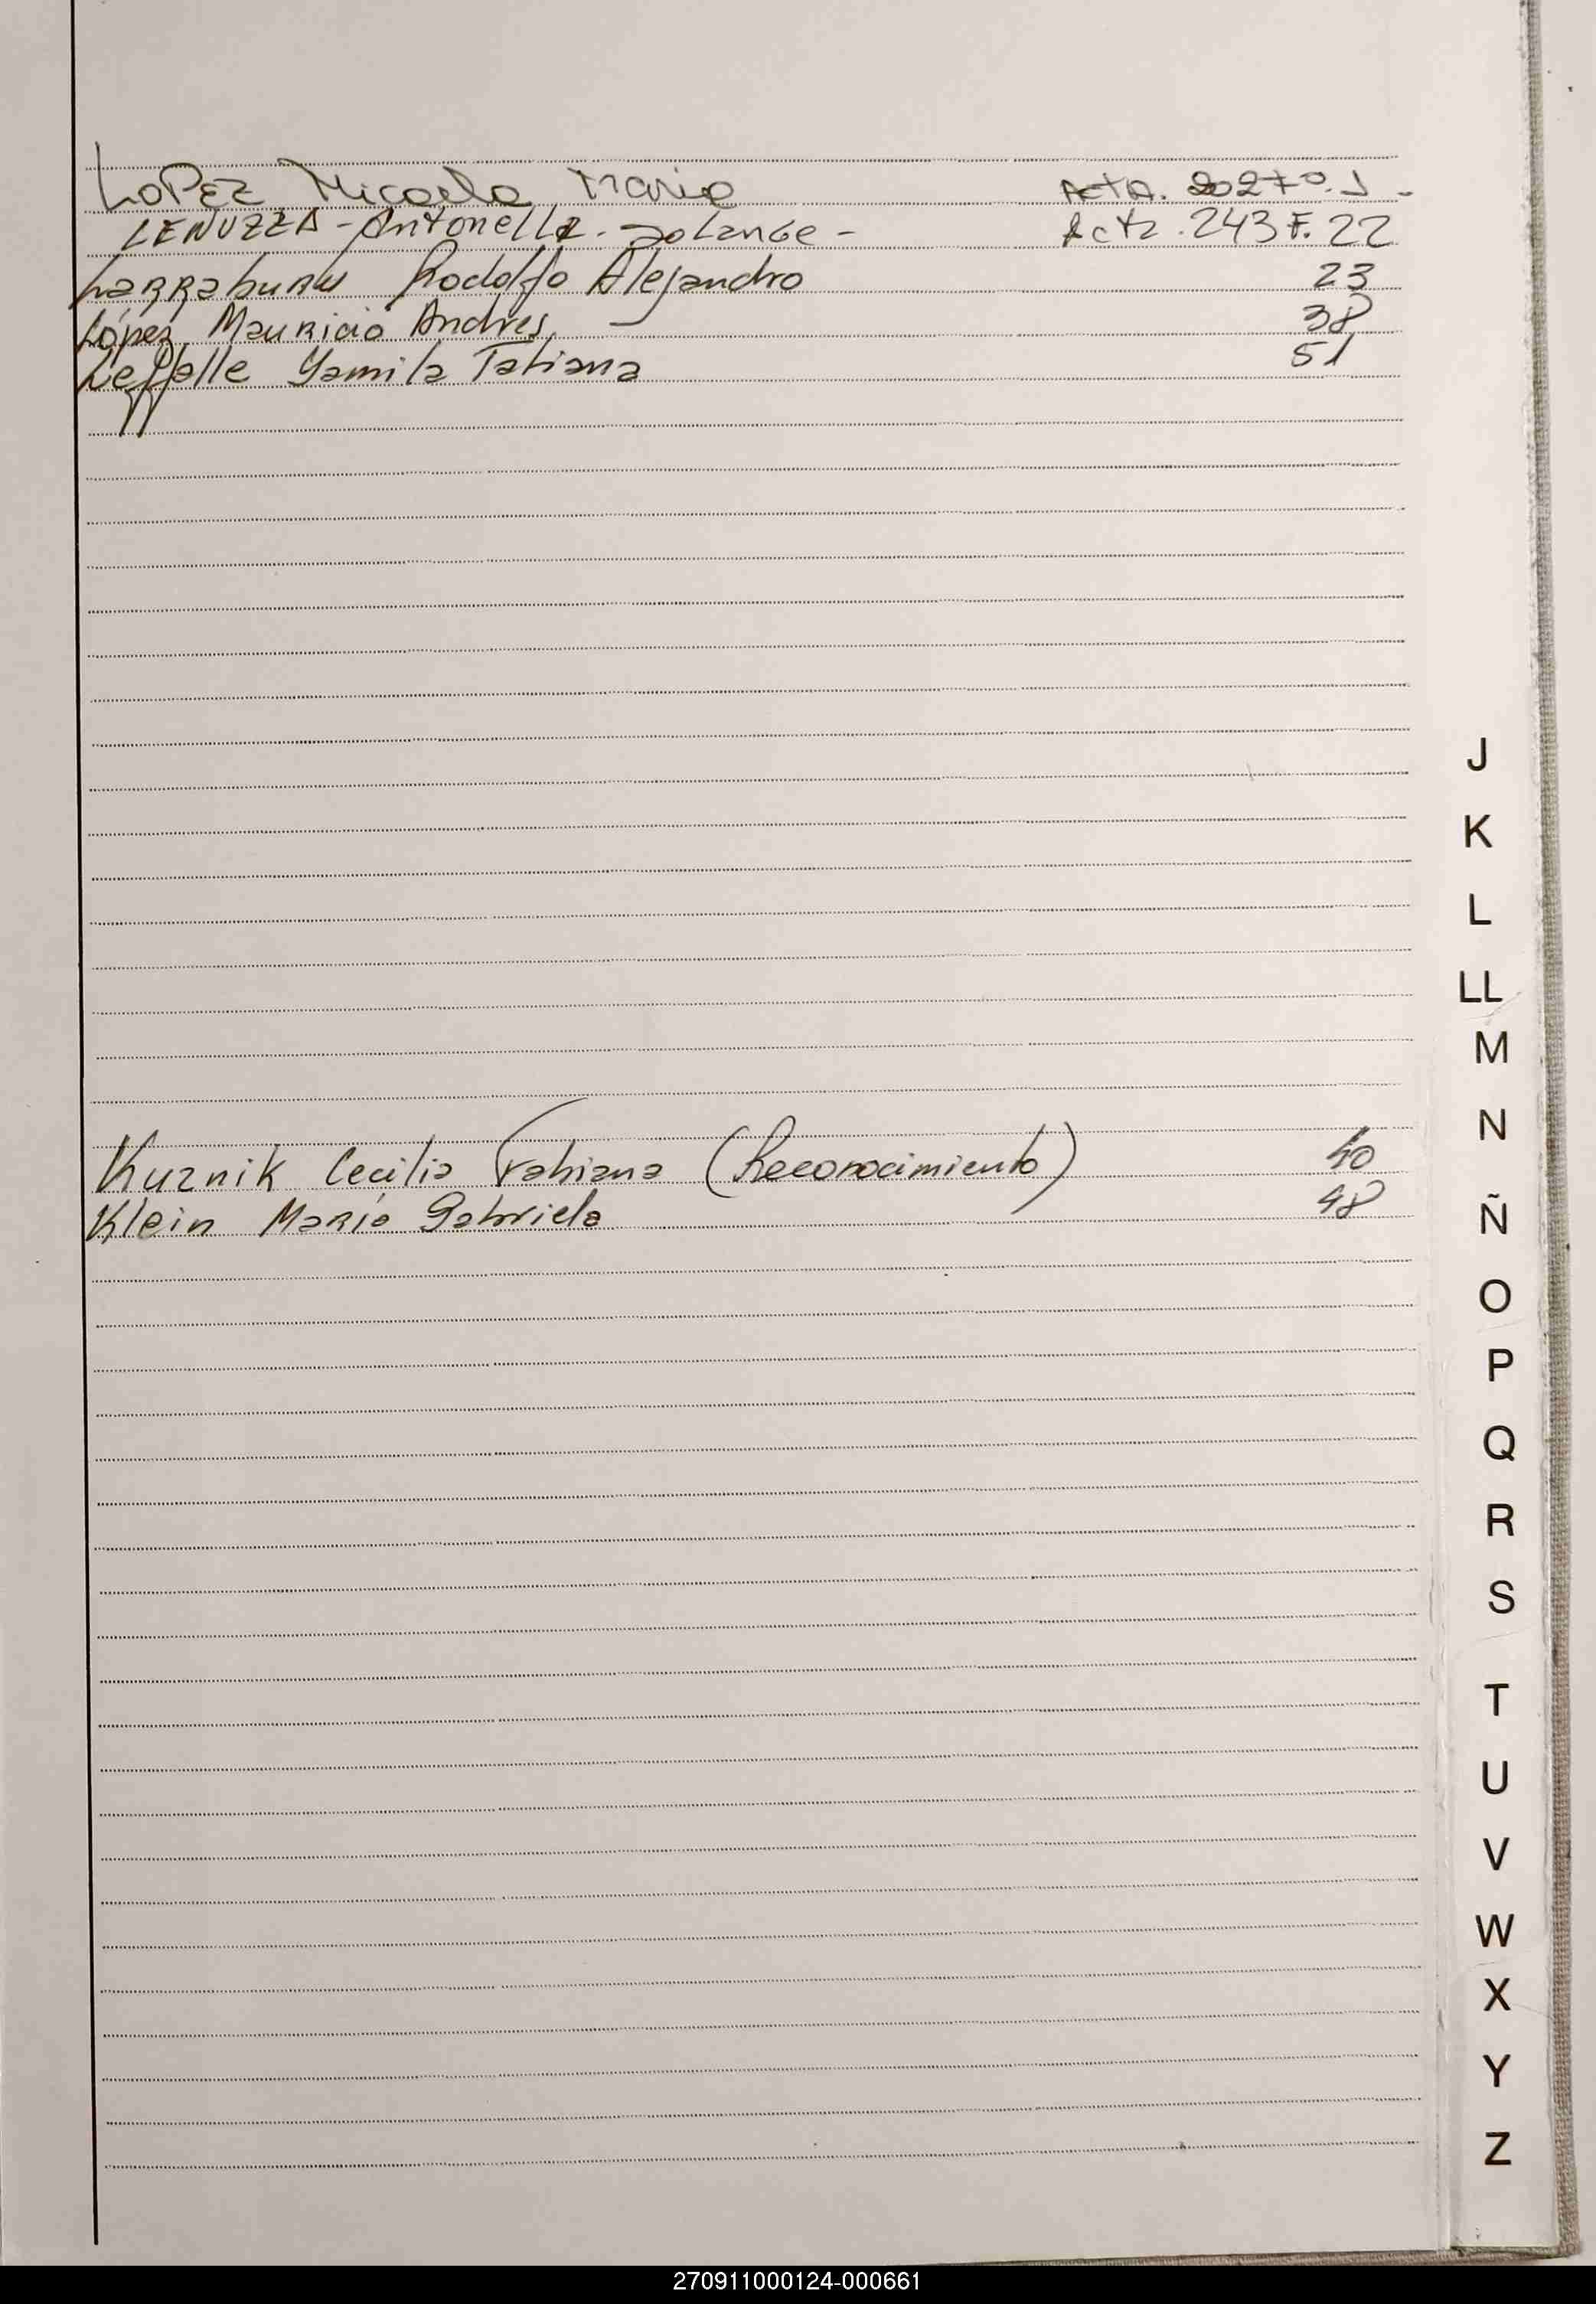 LOPEZ Micaela Maria Acta. 202 Fº. 1 -
LENUZZA - Antonella - Solange - Acta . 243 F. 22
Larraburu Rodolfo Alejandro 23
López Mauricio Andres 38
Leffalle Yamila Tatiana 51
Kuznik Cecilia Fabiana (Reconocimiento) 40
Klein María Gabriela 48
J
K
L
LL
M
N
Ñ
O
P
Q
R
S
T
U
V
W
X
Y
Z
270911000124-000661